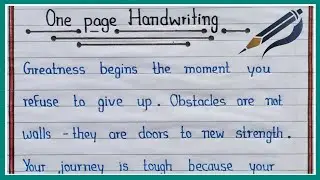 One page Handwriting
Greatness begins the moment you
refuse to give up. Obstacles are not
walls - they are doors to new strength.
Your journey is tough because your